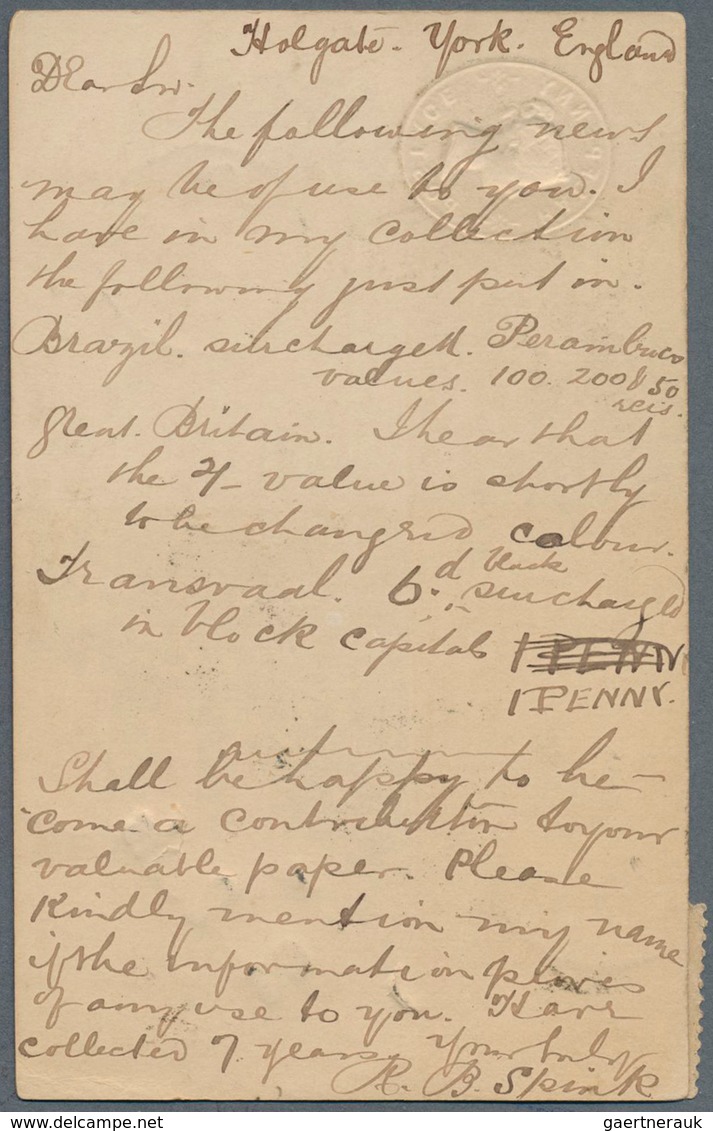 Holgate. York. England
Dear Sir.
The following news
may be of use to you. I
have in my collection
the following just put in.
Brazil. surcharged. Perambuco
values. 100. 200 & 50
reis.
Great. Britain. I hear that
the 4/- value is shortly
to be changed colour.
Transvaal. 6.d black surcharged
in block capitals 1 PENNY
1 PENNY.
Shall be happy to be-
come a contributor to your
valuable paper. Please
kindly mention my name
if the information proves
of any use to you. Have
collected 7 years. Yours truly
R. B. Spink
gaertnerauk